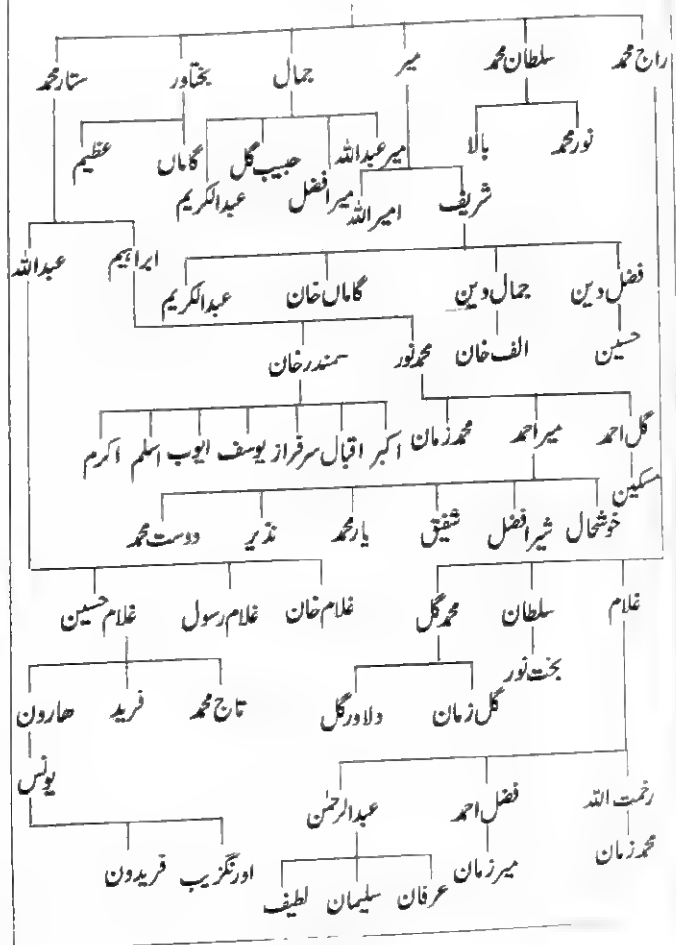 راج محمد سلطان محمد میر جمال بختاور ستار محمد
نور محمد بالا میر عبداللہ میر افضل حبیب گل عبدالکریم گاماں عظیم
شریف امیر اللہ
ابراہیم عبداللہ
فضل دین جمال دین گاماں خان عبدالکریم
حسین الف خان محمد نور سمندر خان
گل احمد میر احمد محمد زمان اکبر اقبال سرفراز یوسف ایوب اسلم اکرم
مسکین
خوشحال شیر افضل شفیق یار محمد نذیر دوست محمد
غلام سلطان محمد گل غلام خان غلام رسول غلام حسین
بخت نور
گل زمان دلاور گل تاج محمد فرید ھارون
یونس
رحمت اللہ فضل احمد عبدالرحمٰن
محمد زمان میر زمان عرفان سلیمان لطیف
اورنگزیب فریدون